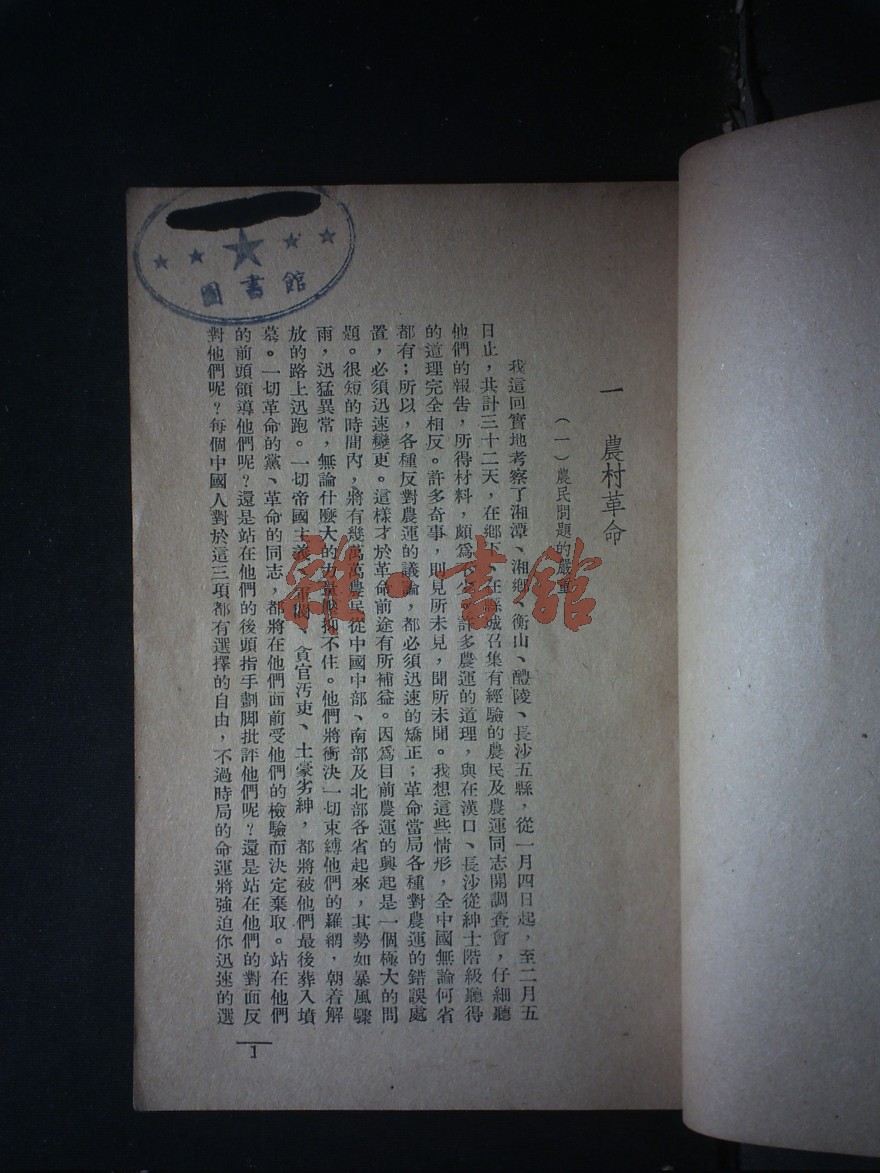 圖書館
一　農村革命
（一）農民問題的嚴重
我這回實地考察了湘潭、湘鄉、衡山、醴陵、長沙五縣，從一月四日起，至二月五
日止，共計三十二天，在鄉下，在縣城召集有經驗的農民及農運同志開調查會，仔細聽
他們的報告，所得材料，頗爲不少。許多農運的道理，與在漢口、長沙從紳士階級聽得
的道理完全相反。許多奇事，則見所未見，聞所未聞。我想這些情形，全中國無論何省
都有；所以，各種反對農運的議論，都必須迅速的矯正；革命當局各種對農運的錯誤處
置，必須迅速變更。這樣才於革命前途有所補益。因爲目前農運的興起是一個極大的問
題。很短的時間內，將有幾萬萬農民從中國中部、南部及北部各省起來，其勢如暴風驟
雨，迅猛異常，無論什麼大的力量壓抑不住。他們將衝決一切束縛他們的羅網，朝着解
放的路上迅跑。一切帝國主義、軍閥、貪官汚吏、土豪劣紳，都將被他們最後葬入墳
墓。一切革命的黨、革命的同志，都將在他們面前受他們的檢驗而決定棄取。站在他們
的前頭領導他們呢？還是站在他們的後頭指手劃脚批評他們呢？還是站在他們的對面反
對他們呢？每個中國人對於這三項都有選擇的自由，不過時局的命運將強迫你迅速的選
1
雜·書館